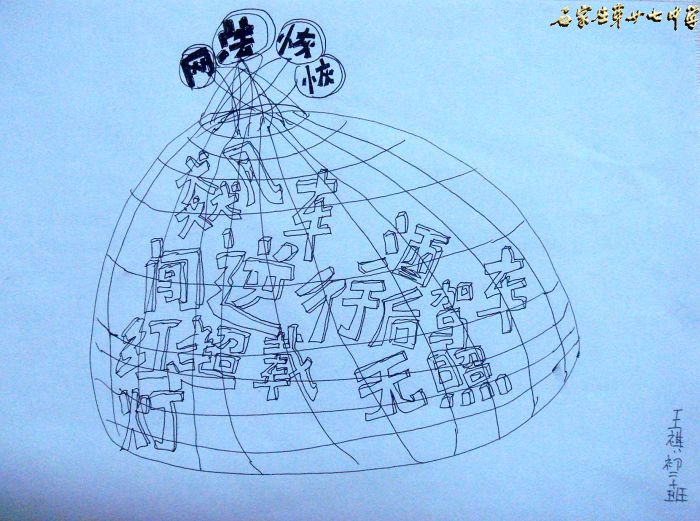 石家庄第廿七中学
法网恢恢
飙车
闯红灯
逆行
酒后驾车
超载
无照
王祺 初二十班